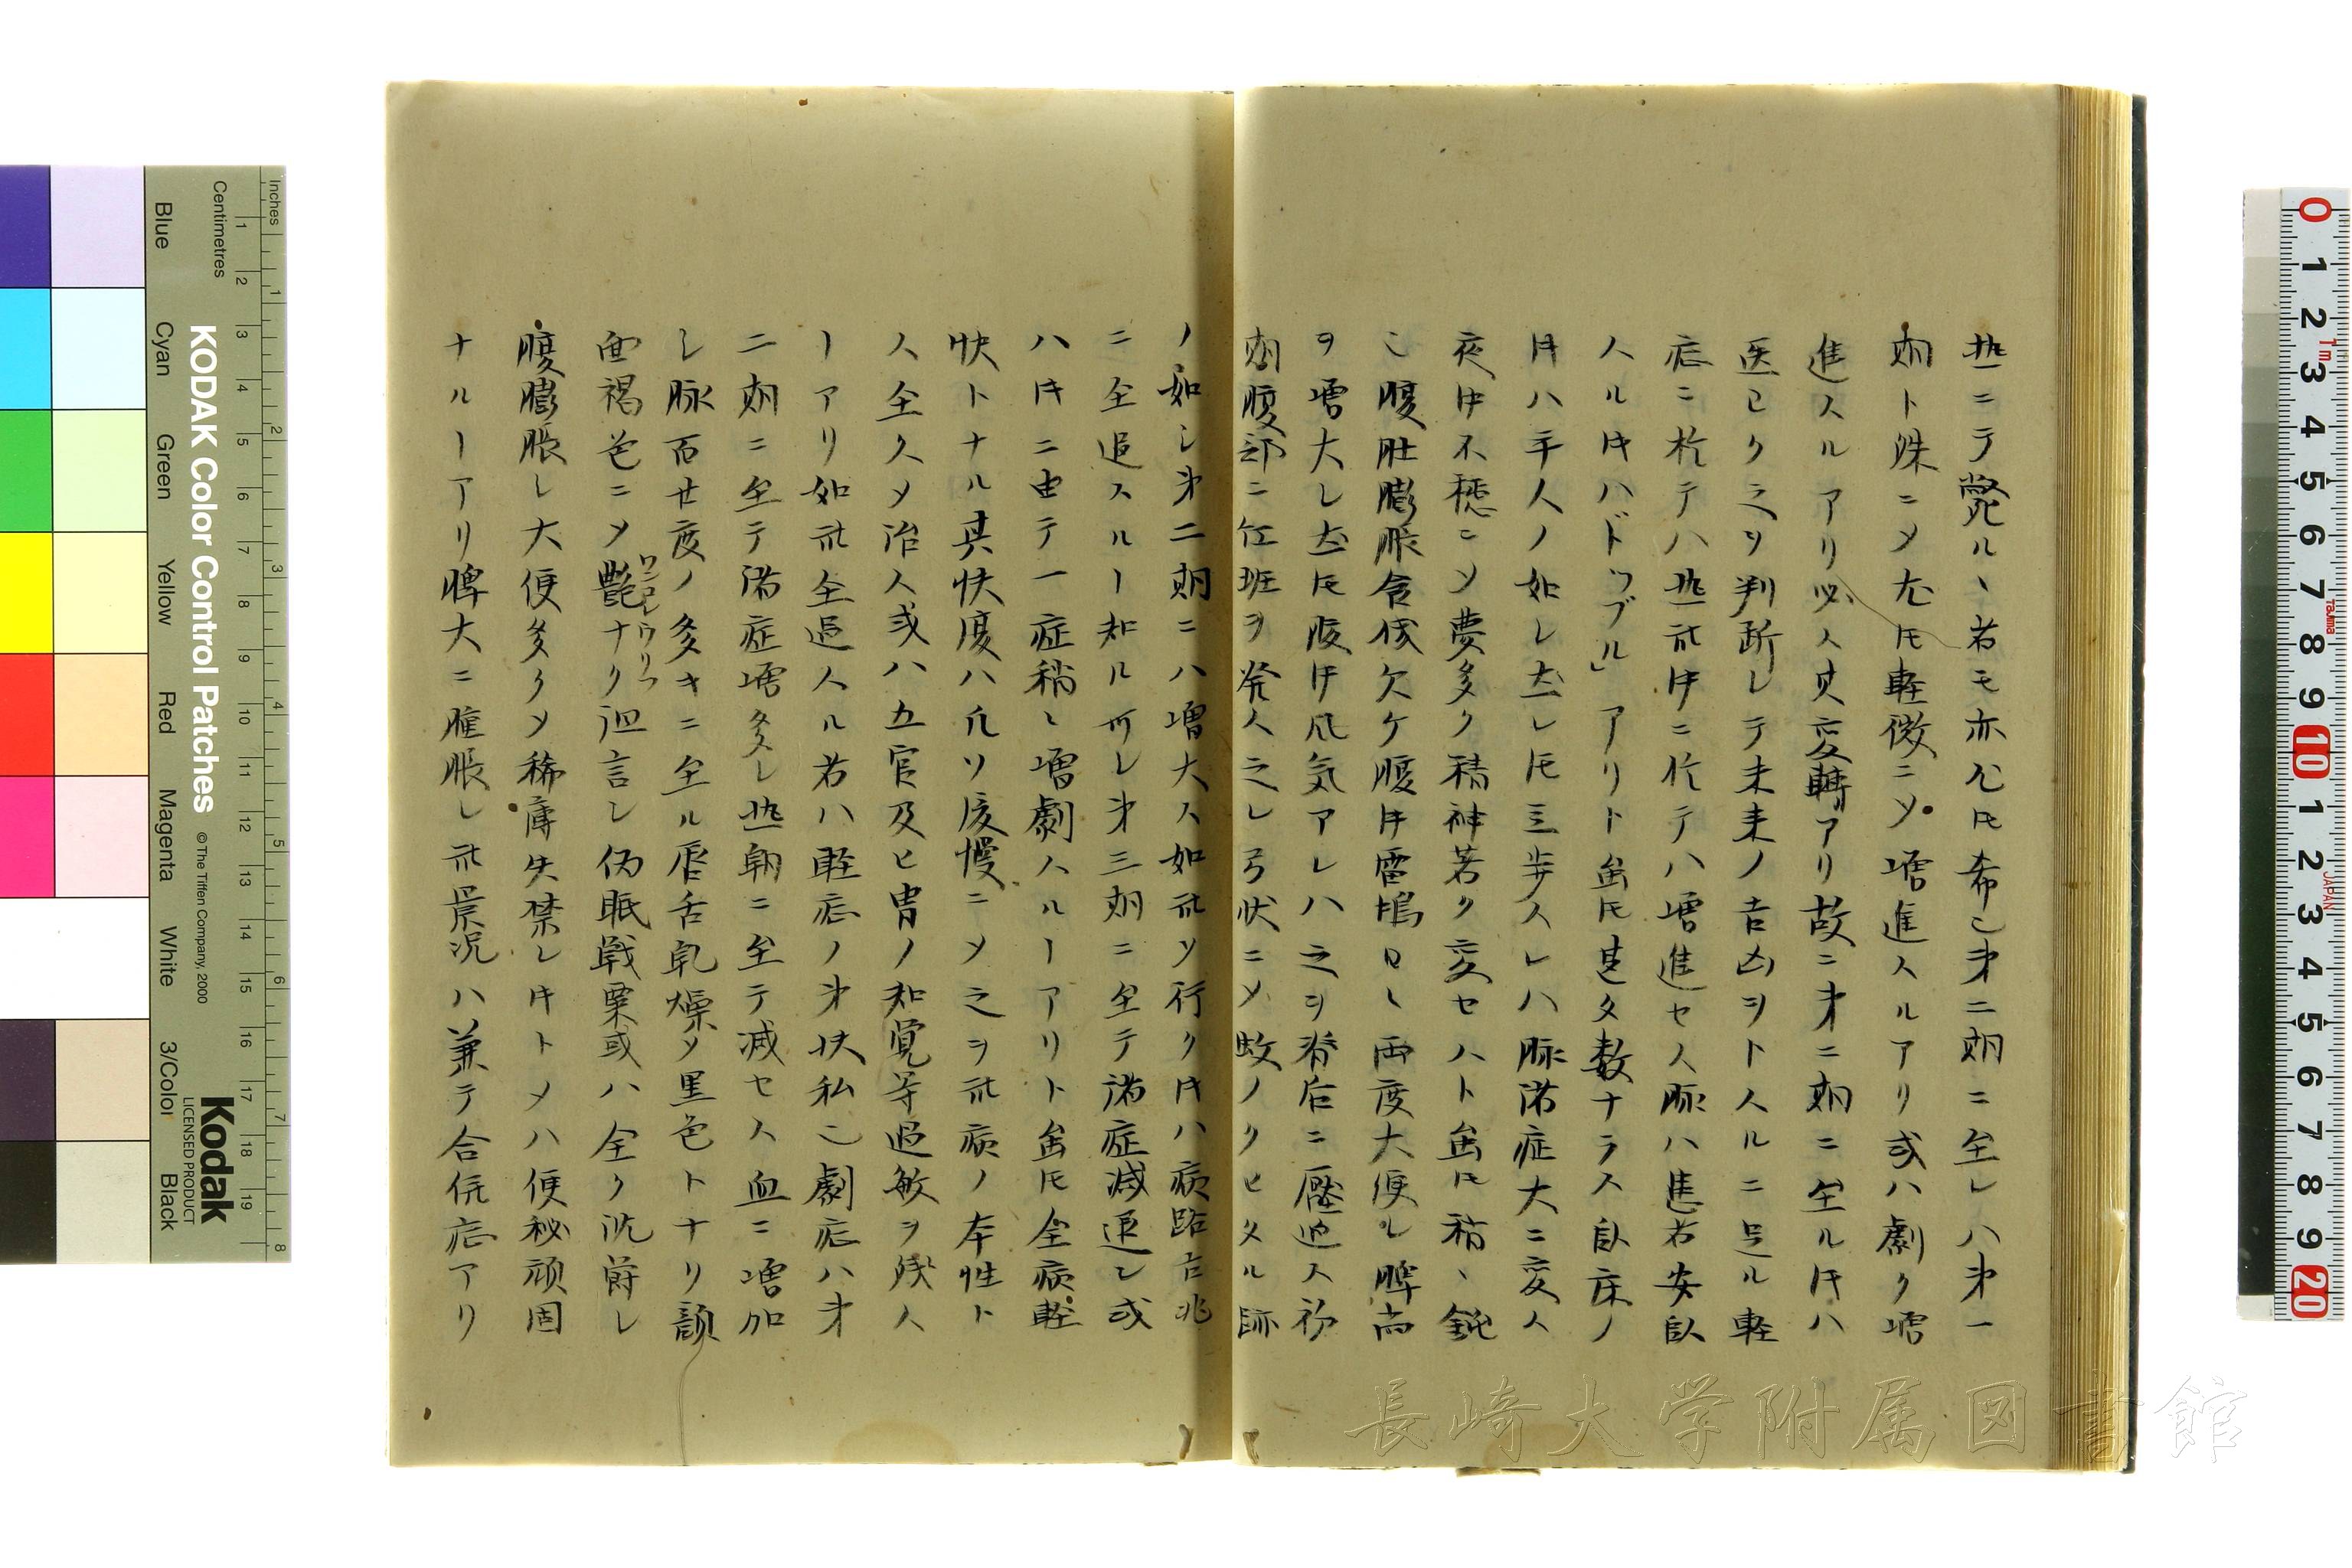 熱ニテ斃ルヽ若モ亦尤ㇳモ希也第二期ニ至レハ第一
期ト殊ニ〆尤ㇳモ軽微ニ〆増進スルアリ或ハ劇ク増
進スルアリ必ス其変轉アリ故ニ才二期ニ至ル時ハ
医已ク之ヲ判断シテ未来ノ吉凶ヲトスルニ足ル軽
症ニ於テハ熱此時ニ於テハ増進セス脉ハ進若安臥
スル時ハ「ドッブル」アリト雖ㇳモ甚タ数ナラス臥床ノ
時ハ平人ノ如シ去レㇳモ三歩スレハ脉諸症大ニ変ス
夜中不穏ニ〆夢多ク精神若ク変セハト雖ㇳモ稍ヽ鈍
シ腹肚膨脹食機欠ケ腹中雷鳴日ヽ両度大便シ脾尚
ヲ増大シ去ㇳモ腹中風気アレハ之ヲ脊后ニ壓迫ス初
期腹部ニ紅班ヲ発ス之レ弓状ニ〆蚊ノクヒタル跡
ノ如シ第二期ニハ増大ス如此ソ行ク時ハ病路吉兆
ニ全退スルヿ知ル可シ第三期ニ至テ諸症減退シ或
ハ時ニ由テ一症稍ヽ増劇スルヿアリト雖ㇳモ全病軽
快トナル其快復ハ凡ソ緩慢ニ〆之ヲ此病ノ本性ト
ス全ク〆治ス或ハ五官及ヒ胃ノ知覚等過敏ヲ残ス
ヿアリ如此全退スル若ハ軽症ノ才状私也劇症ハ才
二期ニ至テ諸症増多シ熱朝ニ至テ減セス血ニ増加
シ脉百廿度ノ多キニ至ル唇舌乾燥〆黒色トナリ顔
面褐色ニ〆艶ナク讝言シ偽眠戦栗或ハ全ク沈欝シ
腹膨脹シ大便多ク〆稀薄失禁シ時ト〆ハ便秘頑固
ナルヿアリ脾大ニ腫脹シ此景况ハ兼テ合併症アリ